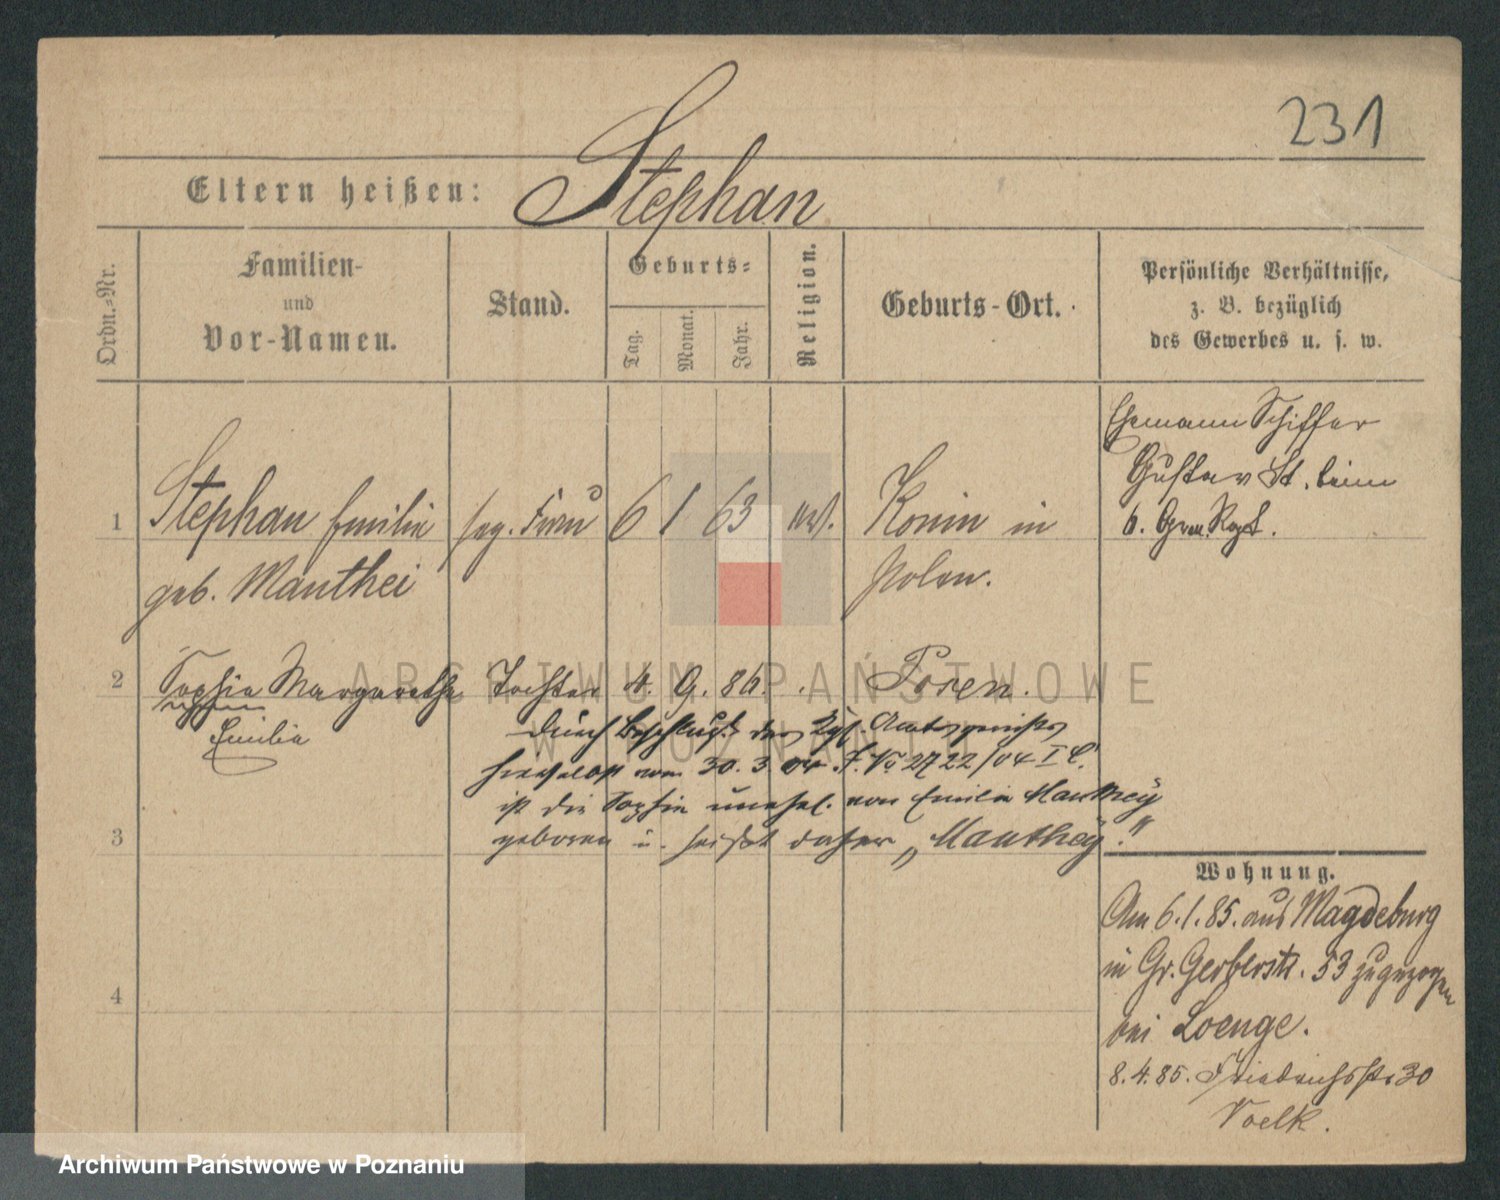 231
Eltern heißen: Stephan
Ordn.-Nr.
Familien-
und
Vor-Namen.
Stand.
Geburts-
Tag.
Monat.
Jahr.
Religion.
Geburts-Ort.
Persönliche Verhältnisse,
z. B. bezüglich
des Gewerbes u. s. w.
Ehemann Schiffer
Gustav St. beim
6. Gren. Regt.
1 Stephan Emilie sep. Frau 6 1 63 Konin in
geb. Manthei Polen.
2 Sophie Margarethe Tochter 4. 9. 86. Posen.
Emilie
durch Beschluß des Kgl. Amtsgerichts
hierselbst vom 30. 3. 04. F. No 2722/04 I C.
ist die Sophie unehel. von Emilie Manthey
3 geboren u. heißt daher „Manthey."
4
Wohnung.
Am 6.1.85. aus Magdeburg
in Gr. Gerberstr. 53 zugezogen
bei Loenge.
8.4.85. Friedrichsstr 30
Voelk.
ARCHIWUM PAŃSTWOWE
W POZNANIU
Archiwum Państwowe w Poznaniu